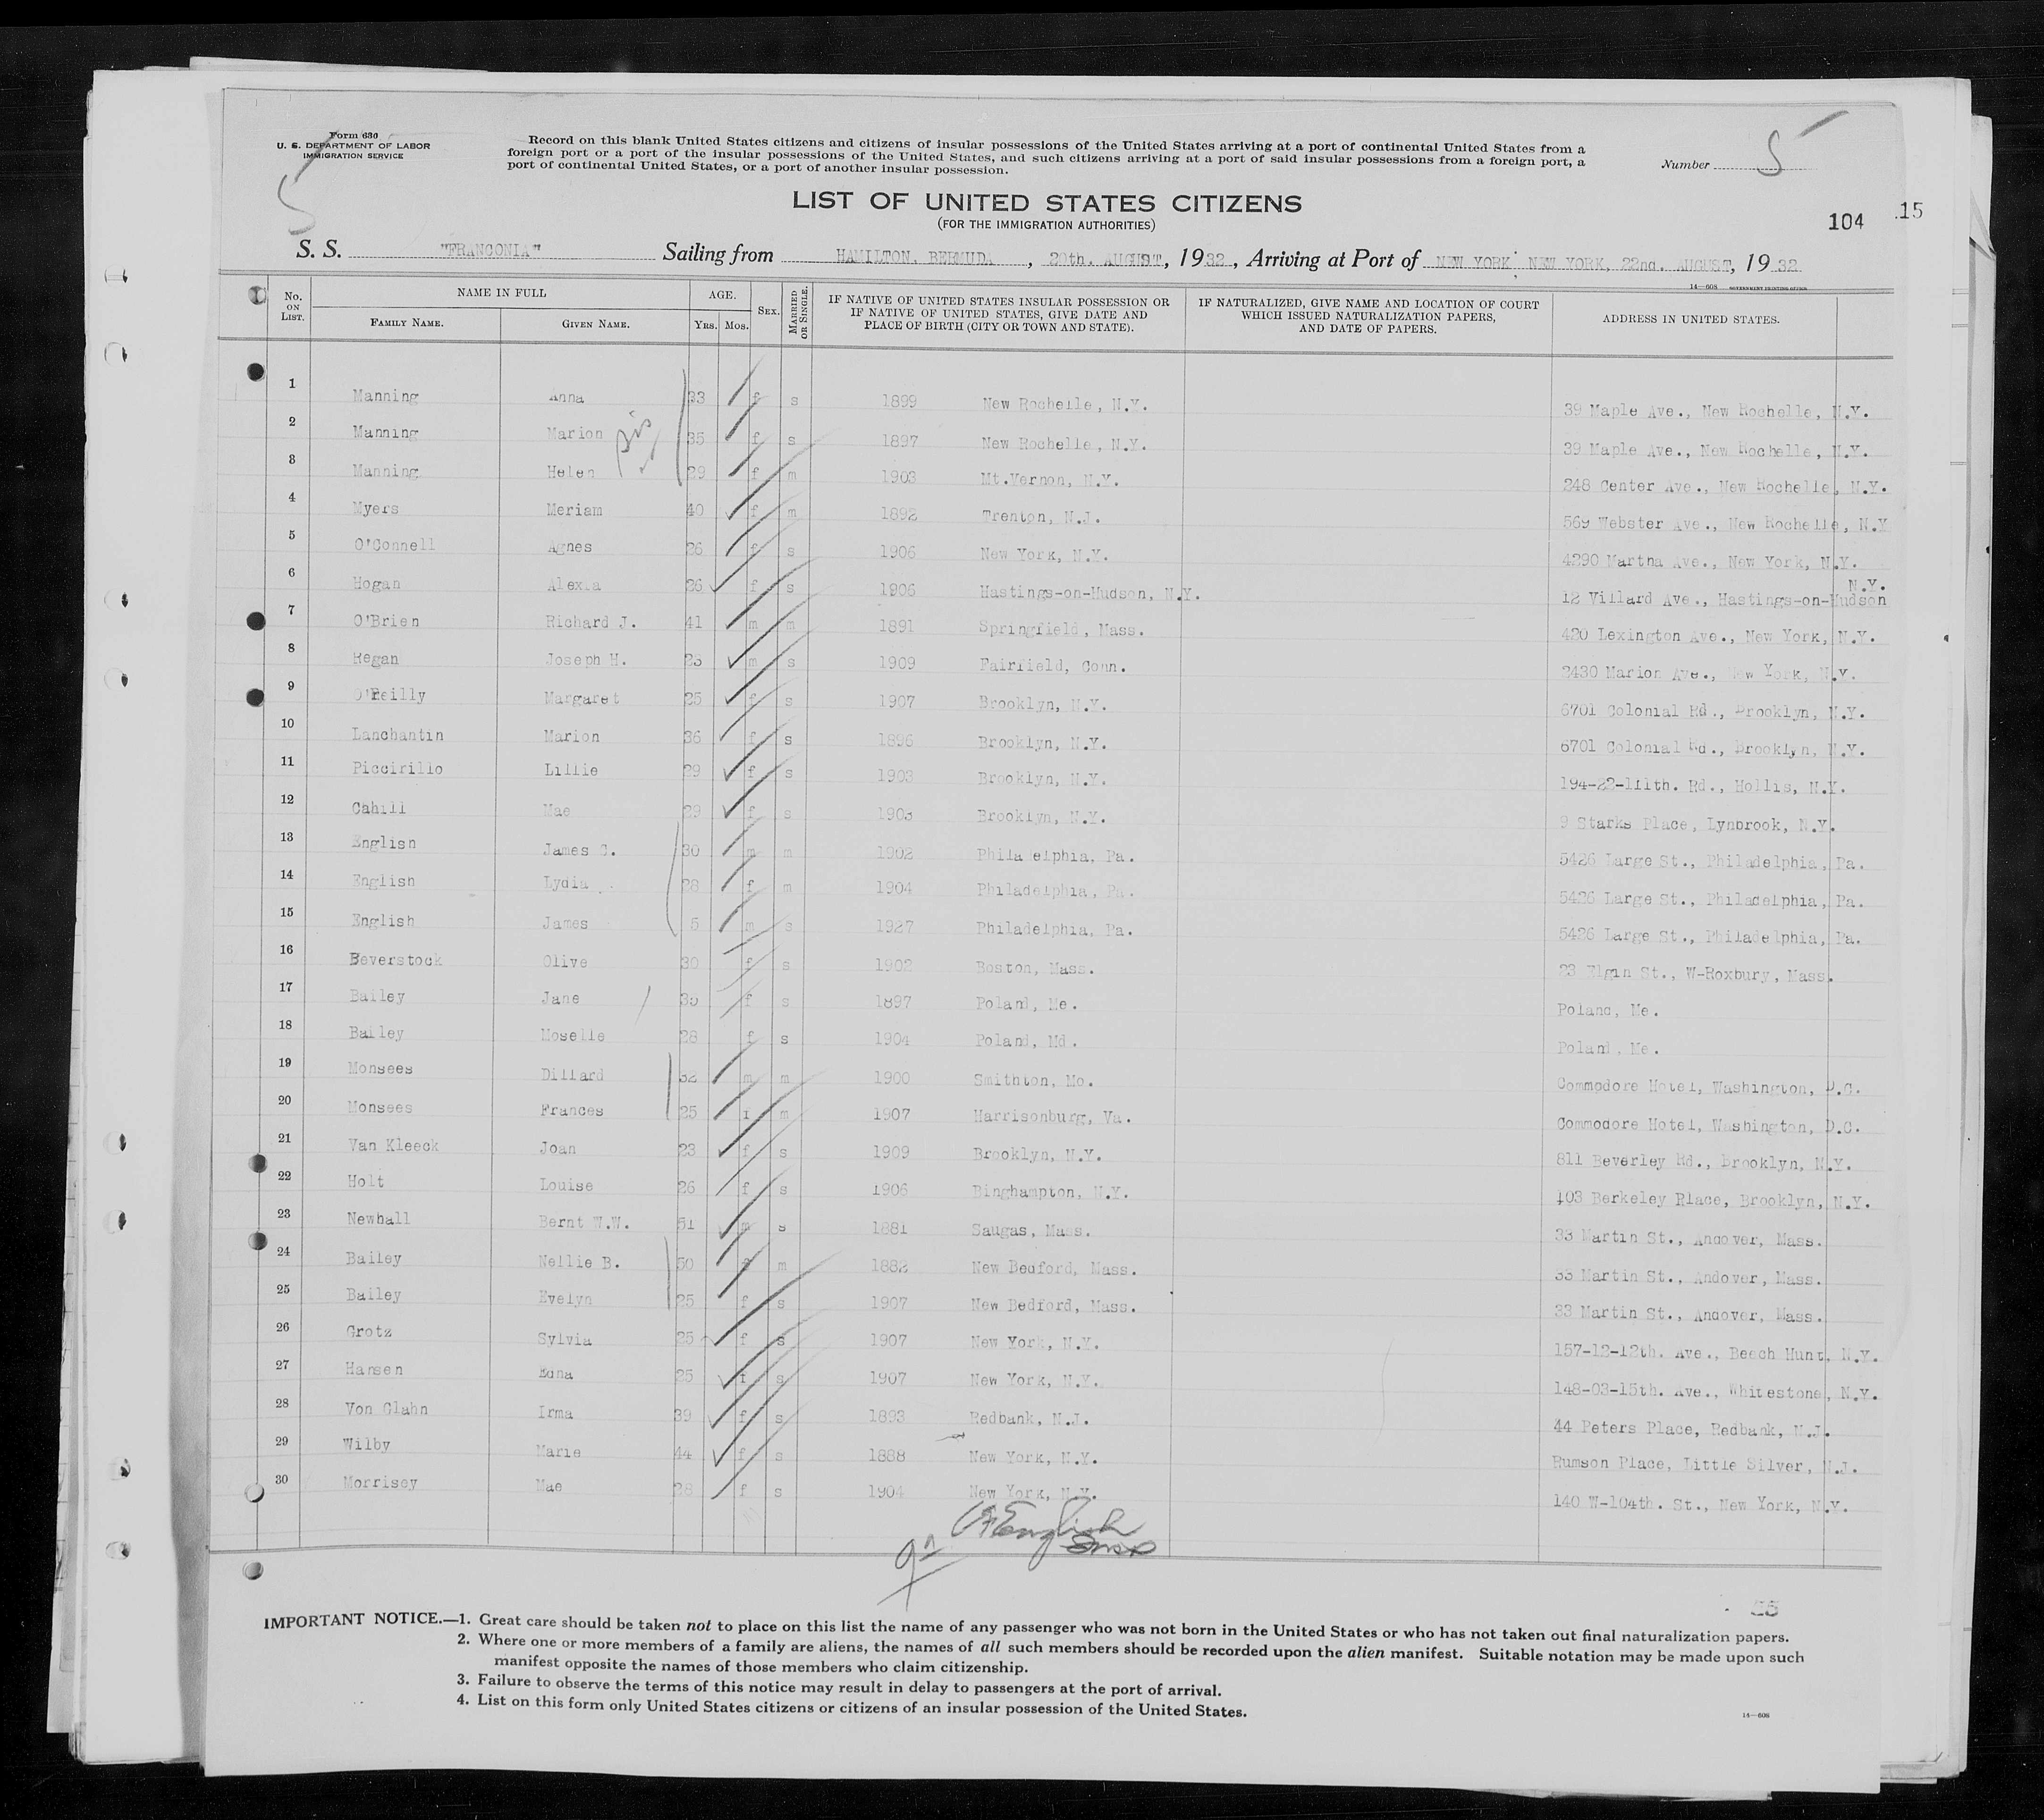 Form 630
U. S. DEPARTMENT OF LABOR
IMMIGRATION SERVICE
Record on this blank United States citizens and citizens of insular possessions of the United States arriving at a port of continental United States from a
foreign port or a port of the insular possessions of the United States, and such citizens arriving at a port of said insular possessions from a foreign port, a
port of continental United States, or a port of another insular possession.
Number 5
5
LIST OF UNITED STATES CITIZENS
(FOR THE IMMIGRATION AUTHORITIES)
104 .15
S. S. "FRANCONIA" Sailing from HAMILTON, BERMUDA, 20th. AUGUST, 1932, Arriving at Port of NEW YORK, NEW YORK, 22nd. AUGUST, 1932
14—608 GOVERNMENT PRINTING OFFICE
No. ON LIST. NAME IN FULL FAMILY NAME. GIVEN NAME. AGE. Yrs. Mos. SEX. MARRIED OR SINGLE. IF NATIVE OF UNITED STATES INSULAR POSSESSION OR IF NATIVE OF UNITED STATES, GIVE DATE AND PLACE OF BIRTH (CITY OR TOWN AND STATE). IF NATURALIZED, GIVE NAME AND LOCATION OF COURT WHICH ISSUED NATURALIZATION PAPERS, AND DATE OF PAPERS. ADDRESS IN UNITED STATES.
1 Manning Anna 33 f s 1899 New Rochelle, N.Y. 39 Maple Ave., New Rochelle, N.Y.
2 Manning Marion sis 35 f s 1897 New Rochelle, N.Y. 39 Maple Ave., New Rochelle, N.Y.
3 Manning Helen 29 f m 1903 Mt.Vernon, N.Y. 248 Center Ave., New Rochelle, N.Y.
4 Myers Meriam 40 f m 1892 Trenton, N.J. 569 Webster Ave., New Rochelle, N.Y
5 O'Connell Agnes 26 f s 1906 New York, N.Y. 4290 Martha Ave., New York, N.Y.
6 Hogan Alexia 26 f s 1906 Hastings-on-Hudson, N.Y. 12 Villard Ave., Hastings-on-Hudson N.Y.
7 O'Brien Richard J. 41 m m 1891 Springfield, Mass. 420 Lexington Ave., New York, N.Y.
8 Regan Joseph H. 23 m s 1909 Fairfield, Conn. 2430 Marion Ave., New York, N.Y.
9 O'Reilly Margaret 25 f s 1907 Brooklyn, N.Y. 6701 Colonial Rd., Brooklyn, N.Y.
10 Lanchantin Marion 36 f s 1896 Brooklyn, N.Y. 6701 Colonial Rd., Brooklyn, N.Y.
11 Piccirillo Lillie 29 f s 1903 Brooklyn, N.Y. 194-22-111th. Rd., Hollis, N.Y.
12 Cahill Mae 29 f s 1903 Brooklyn, N.Y. 9 Starks Place, Lynbrook, N.Y.
13 English James C. 30 m m 1902 Philadelphia, Pa. 5426 Large St., Philadelphia, Pa.
14 English Lydia 28 f m 1904 Philadelphia, Pa. 5426 Large St., Philadelphia, Pa.
15 English James 5 m s 1927 Philadelphia, Pa. 5426 Large St., Philadelphia, Pa.
16 Beverstock Olive 30 f s 1902 Boston, Mass. 23 Elgin St., W-Roxbury, Mass.
17 Bailey Jane 35 f s 1897 Poland, Me. Poland, Me.
18 Bailey Moselle 28 f s 1904 Poland, Md. Poland, Me.
19 Monsees Dillard 32 m m 1900 Smithton, Mo. Commodore Hotel, Washington, D.C.
20 Monsees Frances 25 f m 1907 Harrisonburg, Va. Commodore Hotel, Washington, D.C.
21 Van Kleeck Joan 23 f s 1909 Brooklyn, N.Y. 811 Beverley Rd., Brooklyn, N.Y.
22 Holt Louise 26 f s 1906 Binghampton, N.Y. 103 Berkeley Place, Brooklyn, N.Y.
23 Newhall Bernt W.W. 51 m s 1881 Saugas, Mass. 33 Martin St., Andover, Mass.
24 Bailey Nellie B. 50 f m 1882 New Bedford, Mass. 33 Martin St., Andover, Mass.
25 Bailey Evelyn 25 f s 1907 New Bedford, Mass. 33 Martin St., Andover, Mass.
26 Grotz Sylvia 25 f s 1907 New York, N.Y. 157-12-12th. Ave., Beech Hunt, N.Y.
27 Hansen Edna 25 f s 1907 New York, N.Y. 148-03-15th. Ave., Whitestone, N.Y.
28 Von Glahn Irma 39 f s 1893 Redbank, N.J. 44 Peters Place, Redbank, N.J.
29 Wilby Marie 44 f s 1888 New York, N.Y. Rumson Place, Little Silver, N.J.
30 Morrisey Mae 28 f s 1904 New York, N.Y. 140 W-104th. St., New York, N.Y.
English
IMPORTANT NOTICE.—1. Great care should be taken not to place on this list the name of any passenger who was not born in the United States or who has not taken out final naturalization papers.
2. Where one or more members of a family are aliens, the names of all such members should be recorded upon the alien manifest. Suitable notation may be made upon such
manifest opposite the names of those members who claim citizenship.
3. Failure to observe the terms of this notice may result in delay to passengers at the port of arrival.
4. List on this form only United States citizens or citizens of an insular possession of the United States.
14—608